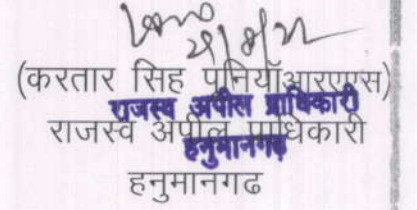 (करतार सिंह पूनियाँआरएएस)
राजस्व अपील प्राधिकारी
राजस्व अपील प्राधिकारी
हनुमानगढ
हनुमानगढ